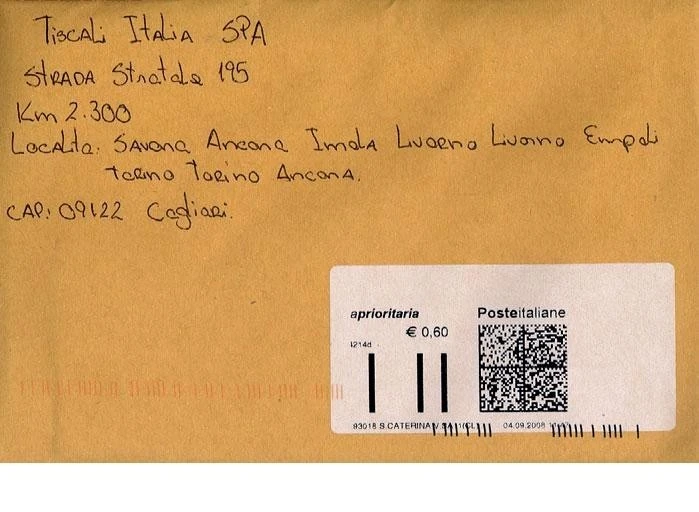 Tiscali Italia SPA
STRADA Statale 195
Km 2.300
Località: Savona Ancona Imola Livorno Livorno Empoli
Torino Torino Ancona.
CAP: 09122 Cagliari.
aprioritaria
Posteitaliane
€ 0,60
1214d
93018 S.CATERINA V.SA 1(CL)
04.09.2008